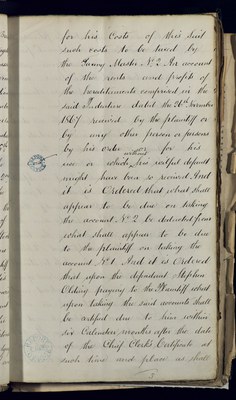 for his Costs of this Suit
such costs to be taxed by
the Taxing Master No. 2 An account
of the rents and profits of
the hereditaments comprised in the
said Indenture dated the 26th November
1867 received by the plaintiff or
by any other person or persons
by his order or for his
use or which without his wilful default
might have been so received And
it is Ordered that what shall
appear to be due on taking
the account No. 2 be deducted from
what shall appear to be due
to the plaintiff on taking the
account No. 1 And it is Ordered
that upon the defendant Stephen
paying to the Plaintiff what
upon taking the said accounts shall
be certified due to him within
six Calendar months after the date
of the Chief Clerk's Certificate at
such time and place as shall